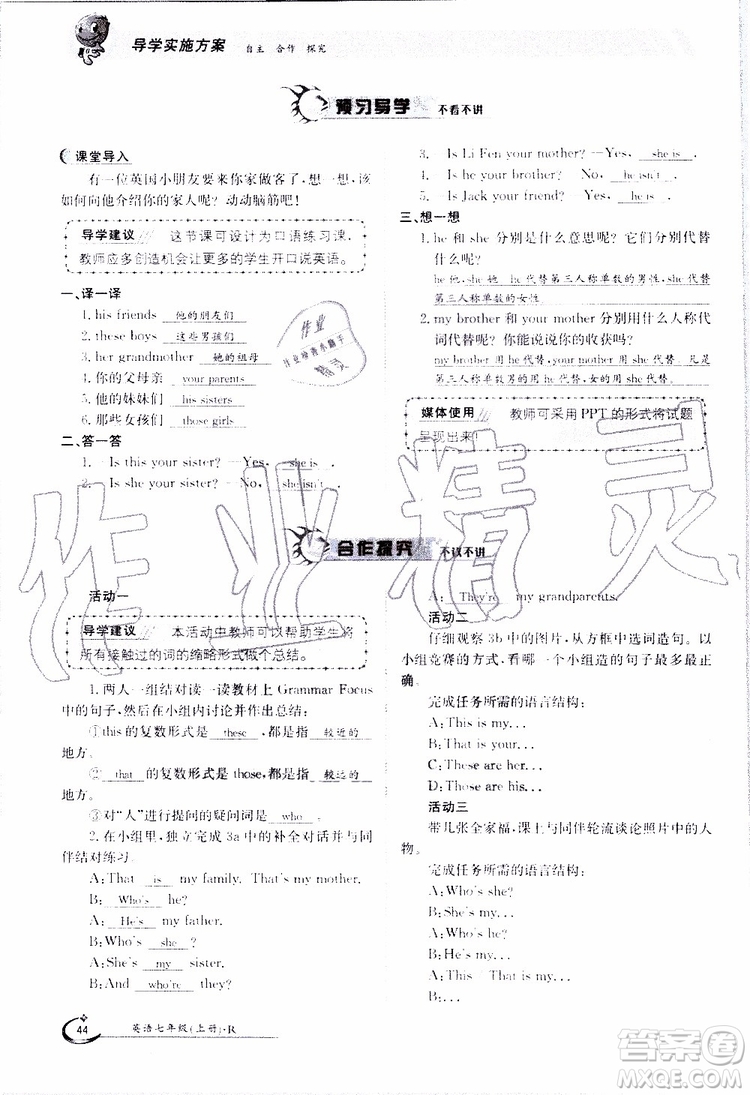 导学实施方案 自主 合作 探究
预习导学 不看不讲
课堂导入
有一位英国小朋友要来你家做客了,想一想,该
如何向他介绍你的家人呢?动动脑筋吧!
导学建议 这节课可设计为口语练习课,
教师应多创造机会让更多的学生开口说英语。
一、译一译
1. his friends 他的朋友们
2. these boys 这些男孩们
3. her grandmother 她的祖母
4. 你的父母亲 your parents
5. 他的妹妹们 his sisters
6. 那些女孩们 those girls
二、答一答
1. —Is this your sister? —Yes, she is.
2. —Is she your sister? —No, she isn't.
3. —Is Li Fen your mother? —Yes, she is.
4. —Is he your brother? —No, he isn't.
5. —Is Jack your friend? —Yes, he is.
三、想一想
1. he 和 she 分别是什么意思呢?它们分别代替
什么呢?
he 他,she 她。he 代替第三人称单数的男性,she 代替
第三人称单数的女性。
2. my brother 和 your mother 分别用什么人称代
词代替呢?你能说说你的收获吗?
my brother 用 he 代替,your mother 用 she 代替。凡是
第三人称单数男的用 he 代替,女的用 she 代替。
媒体使用 教师可采用PPT的形式将试题
呈现出来!
合作探究 不议不讲
活动一
导学建议 本活动中教师可以帮助学生将
所有接触过的词的缩略形式做个总结。
1. 两人一组结对读一读教材上 Grammar Focus
中的句子,然后在小组内讨论并作出总结:
①this 的复数形式是 these ,都是指 较近的
地方。
② that 的复数形式是 those,都是指 较远的
地方。
③对“人”进行提问的疑问词是 who 。
2. 在小组里,独立完成 3a 中的补全对话并与同
伴结对练习。
A: That is my family. That's my mother.
B: Who's he?
A: He's my father.
B: Who's she ?
A: She's my sister.
B: And who are they?
A: They're my grandparents.
活动二
仔细观察 3b 中的图片,从方框中选词造句。以
小组竞赛的方式,看哪一个小组造的句子最多最正
确。
完成任务所需的语言结构:
A: This is my...
B: That is your...
C: These are her...
D: Those are his...
活动三
带几张全家福,课上与同伴轮流谈论照片中的人
物。
完成任务所需的语言结构:
A: Who's she?
B: She's my...
A: Who's he?
B: He's my...
A: Who're they?
B: ...
44 英语七年级(上册)·R
作业精灵
答案圈